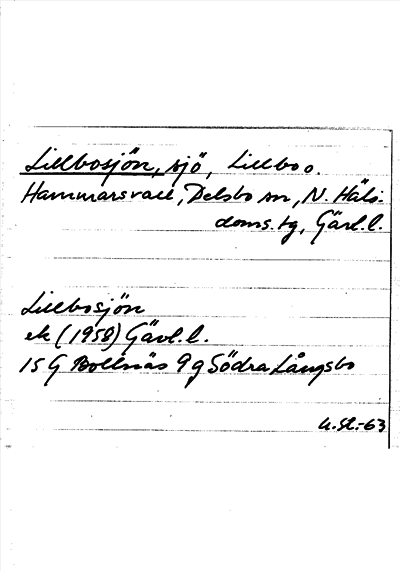 Lillbosjön, sjö, Lillbo o.
Hammarsvall, Delsbo sn, N. Häls.
doms. tg, Gävl. l.
Lillbosjön
ek (1958) Gävl. l.
15 G Bollnäs 9 g Södra Långsbo
U. Sl.-63